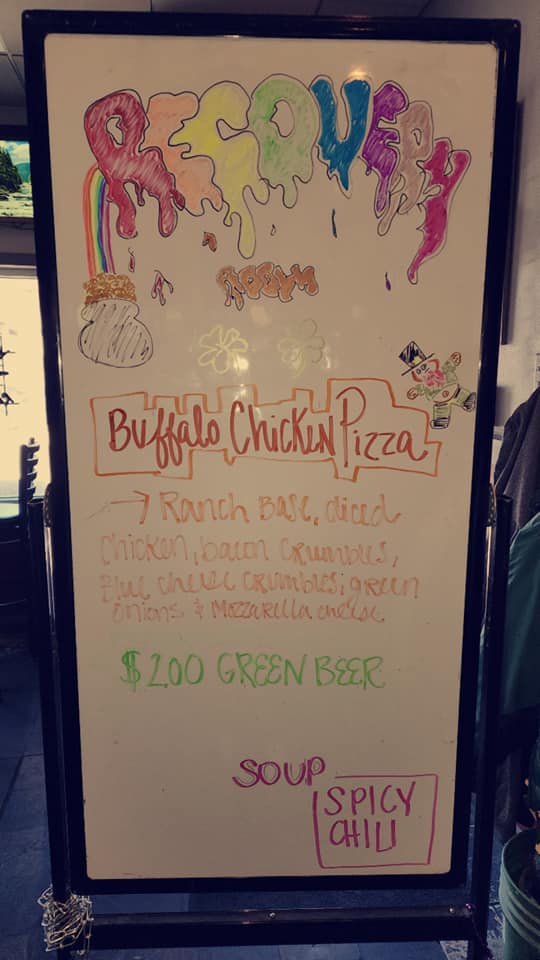 RECOVERY
ROOM
Buffalo Chicken Pizza
→ Ranch Base, diced
Chicken, bacon crumbles,
Blue cheese crumbles, green
onions & Mozzarella cheese
$2.00 GREEN BEER
SOUP
SPICY
CHILI